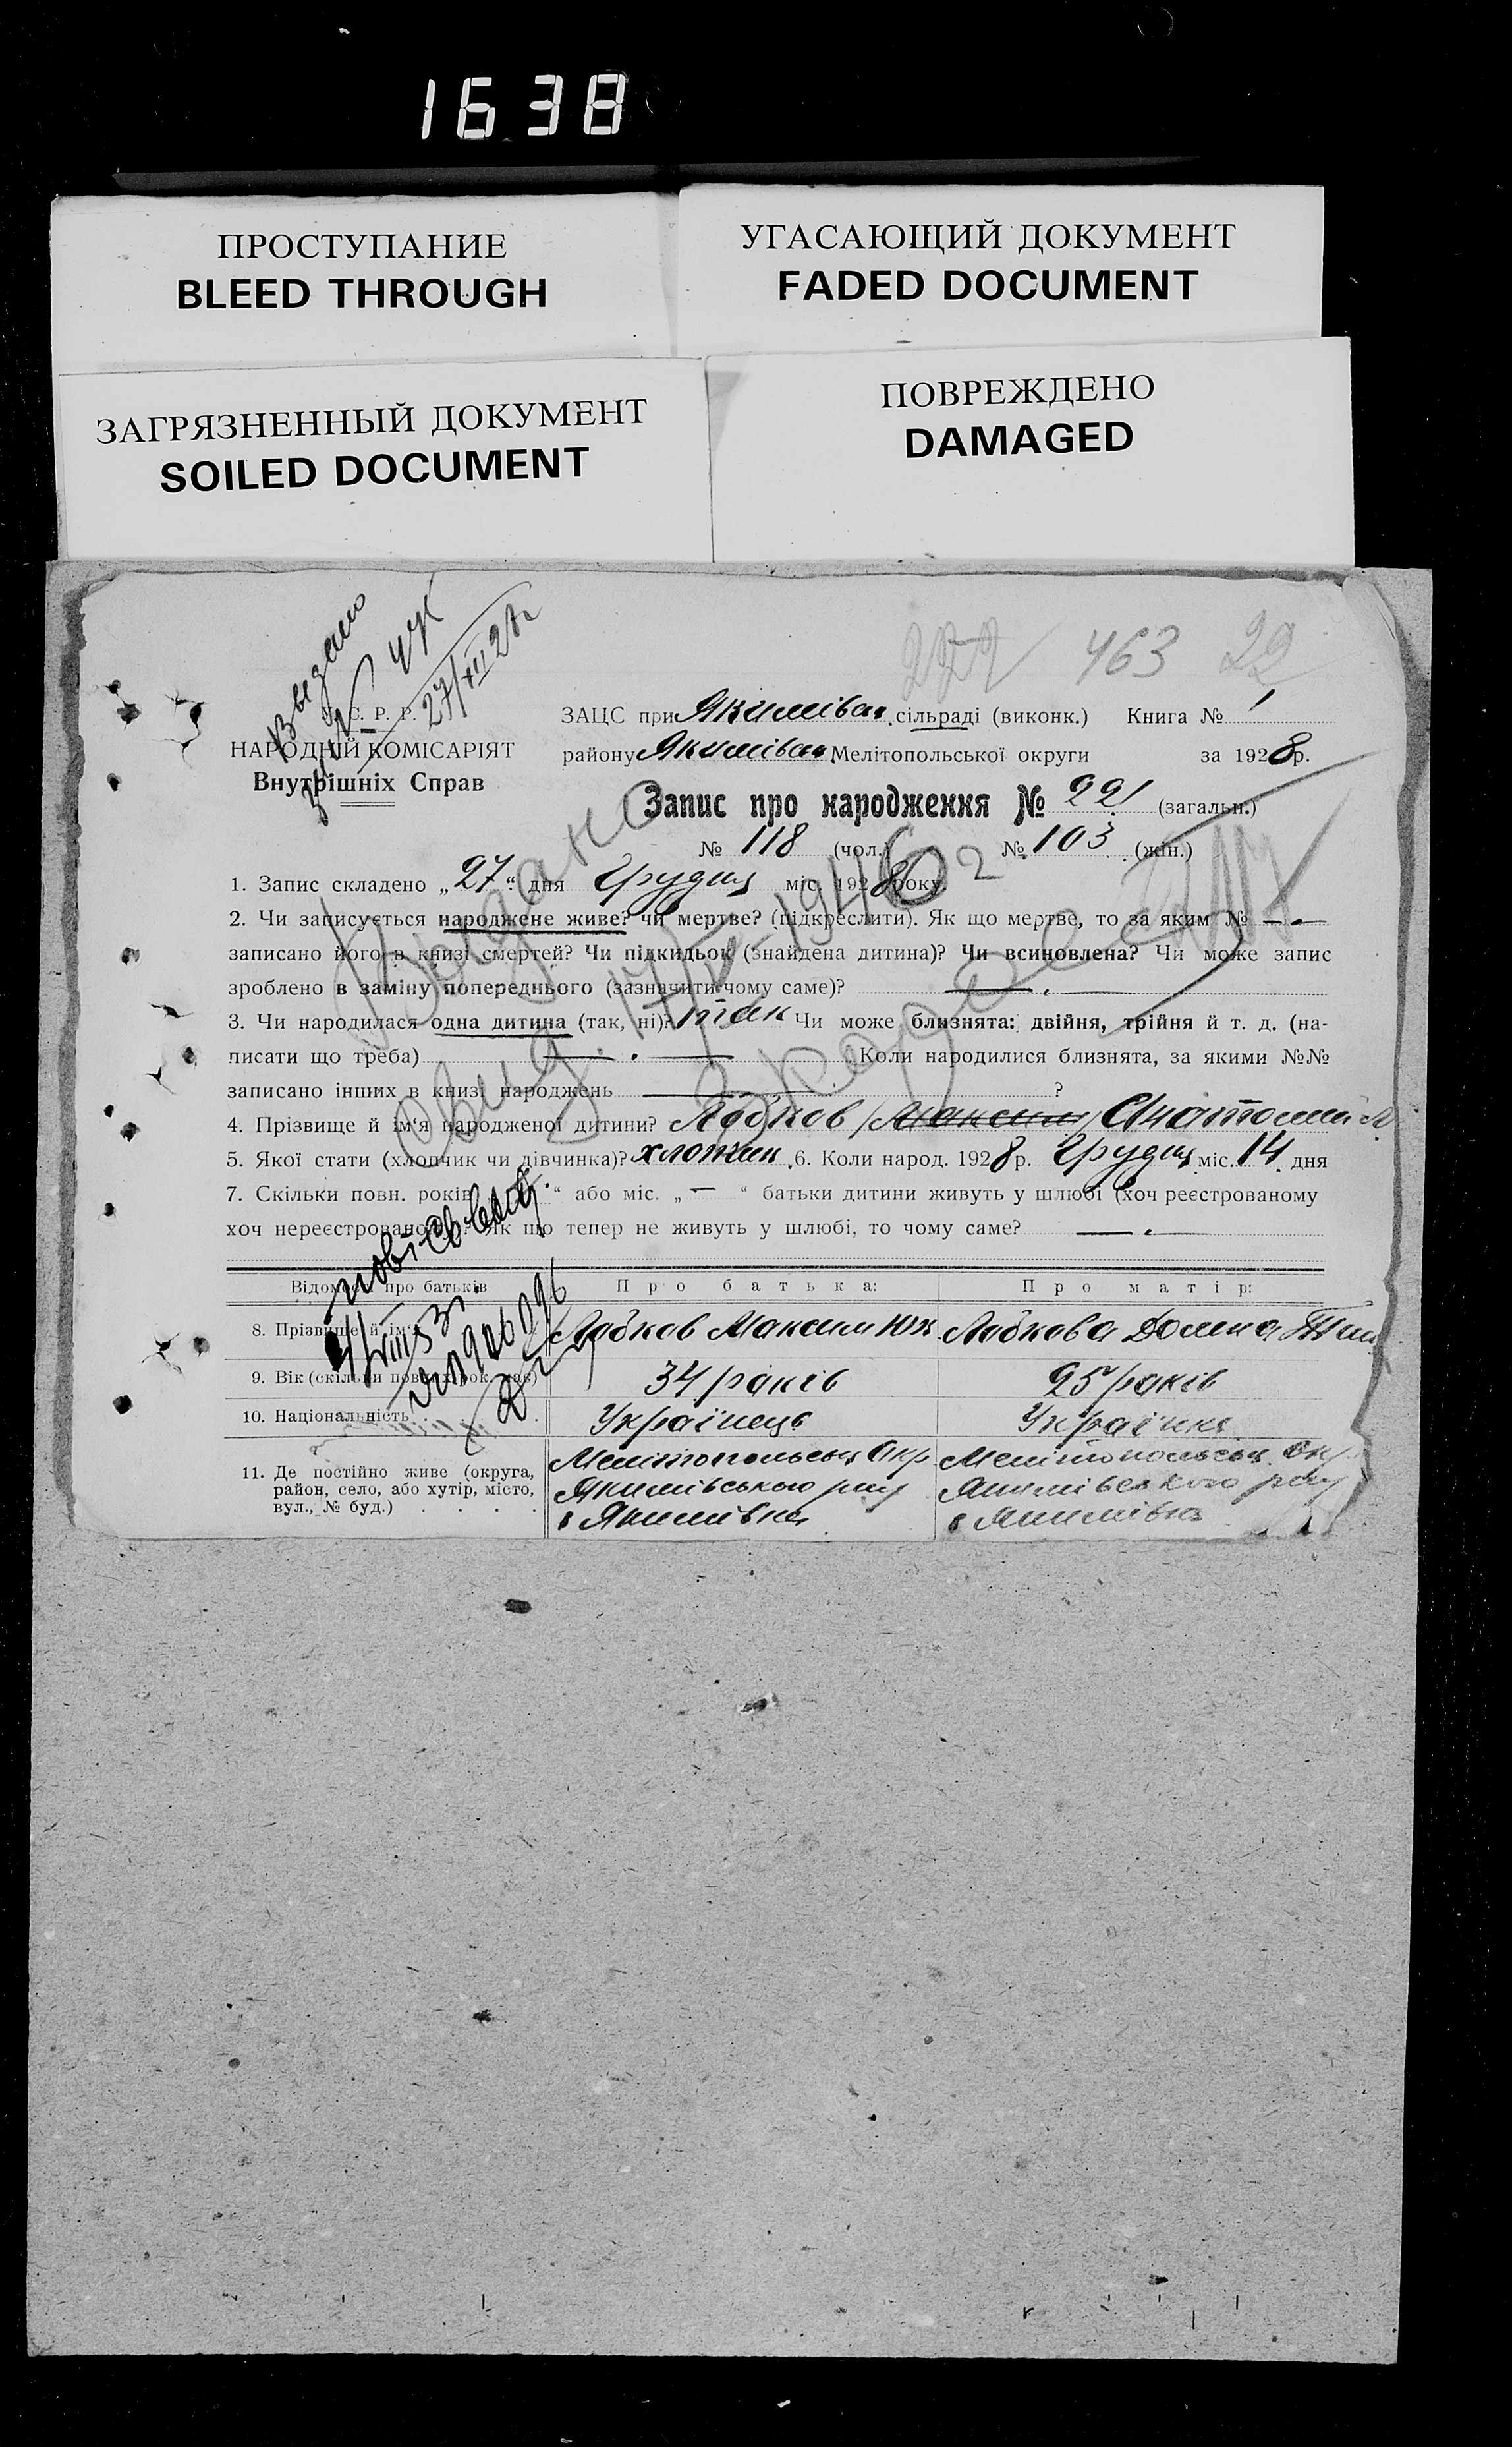 1638
ПРОСТУПАНИЕ
BLEED THROUGH
УГАСАЮЩИЙ ДОКУМЕНТ
FADED DOCUMENT
ЗАГРЯЗНЕННЫЙ ДОКУМЕНТ
SOILED DOCUMENT
ПОВРЕЖДЕНО
DAMAGED
463 22
27/XII 28
С. Р. Р.
НАРОДНІЙ КОМІСАРІЯТ
Внутрішніх Справ
ЗАЦС при Якимівск. сільраді (виконк.) Книга № 1
району Якимівск. Мелітопольської округи за 1928 р.
Запис про народження № 221 (загальн.)
№ 118 (чол.) № 103 (жін.)
1. Запис складено „27“ дня Грудня міс. 1928 року.
2. Чи записується народжене живе? чи мертве? (підкреслити). Як що мертве, то за яким № —
записано його в книзі смертей? Чи підкидьок (знайдена дитина)? Чи всиновлена? Чи може запис
зроблено в заміну попереднього (зазначити чому саме)? —
3. Чи народилася одна дитина (так, ні)? так Чи може близнята: двійня, трійня й т. д. (на-
писати що треба) — Коли народилися близнята, за якими №№
записано інших в книзі народжень — ?
4. Прізвище й ім‘я народженої дитини? Лобков (Максим) Анатолий
5. Якої стати (хлопчик чи дівчинка)? хлопчик 6. Коли народ. 1928 р. Грудня міс. 14 дня
7. Скільки повн. років “ або міс. „—“ батьки дитини живуть у шлюбі (хоч реєстрованому
хоч нереєстрованому)? Як що тепер не живуть у шлюбі, то чому саме? —
Відомості про батьків Про батька: Про матір:
8. Прізвище й ім‘я Лобков Максим Юх Лобкова Домна Тим
9. Вік (скільки повн. рок. має) 34 років 25 років
10. Національність Українець Українка
11. Де постійно живе (округа, район, село, або хутір, місто, вул., № буд.)
Мелітопольськ Окр Мелітопольськ. Окр.
Якимівського р-ну Якимівського р-ну
в Якимівка в Якимівка